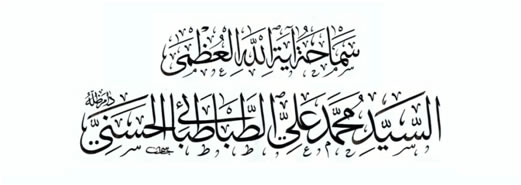 سماحة آية الله العظمى
السيد محمد علي الطباطبائي الحسني دام ظله